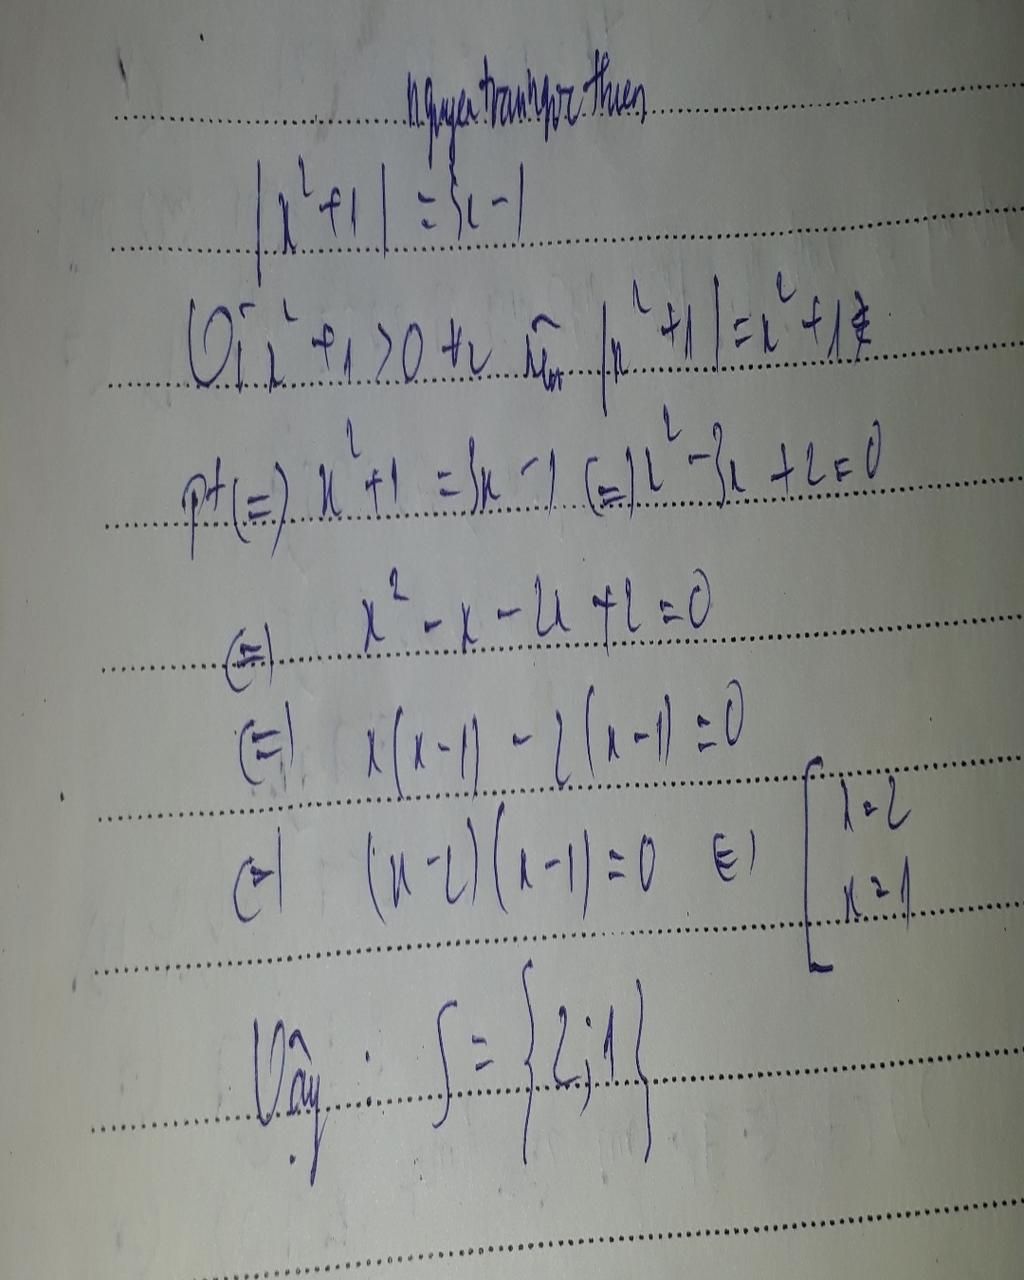 nguyentranngocthien
|x²+1| = 3x-1
Vì x²+1>0 ∀x nên |x²+1| = x²+1
pt (=) x²+1 = 3x-1 (=) x²-3x+2=0
(=) x²-x-2x+2=0
(=) x(x-1)-2(x-1)=0
(=) (x-2)(x-1)=0 (=) [ x=2
x=1
Vậy : S = {2;1}